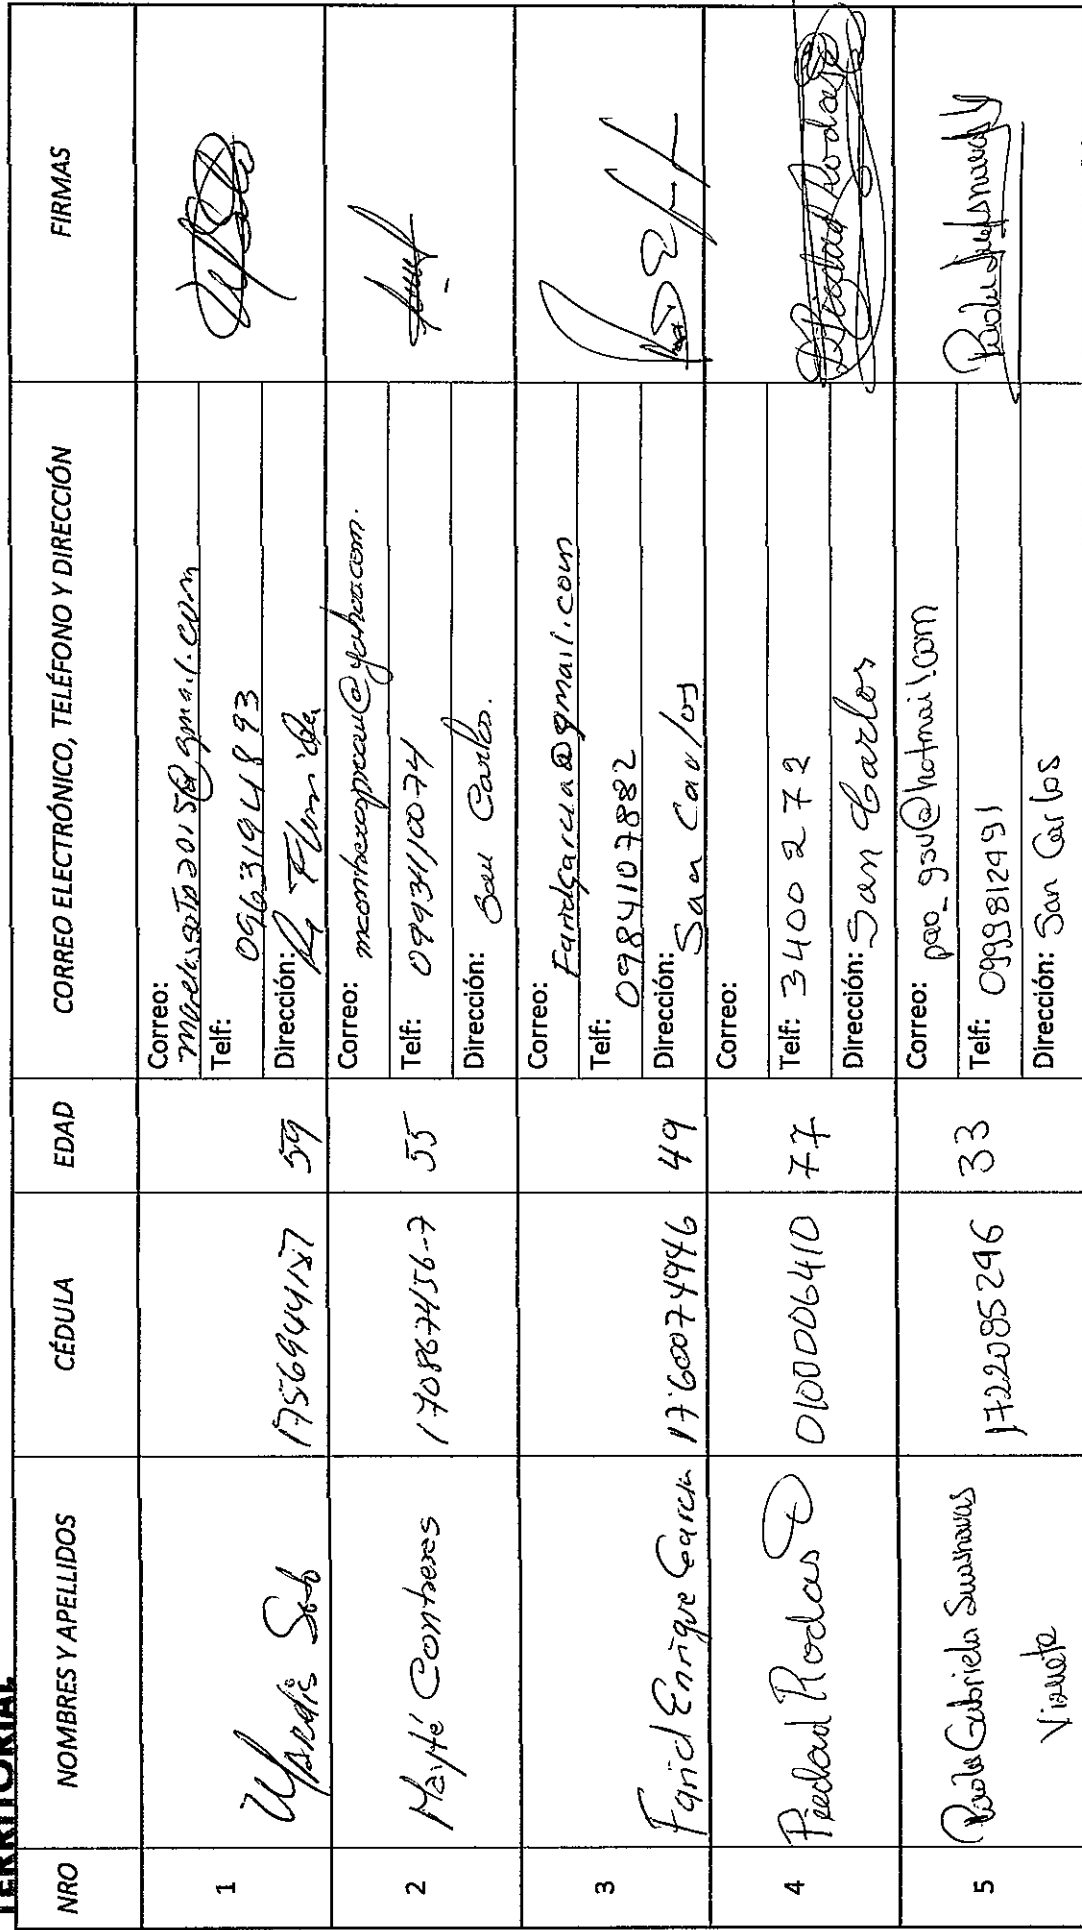 TERRITORIAL
NRO NOMBRES Y APELLIDOS CÉDULA EDAD CORREO ELECTRÓNICO, TELÉFONO Y DIRECCIÓN FIRMAS
1 Maredis Soto 1756944187 59
Correo: marelissoto2015@gmail.com
Telf: 0963194893
Dirección:
2 Mayté Contreras 170867456-7 55
Correo:
Telf: 0993110074
Dirección: San Carlos.
3 Farid Enrique Garcia 1760074946 49
Correo: Faridgarcia@gmail.com
Telf: 0984107882
Dirección: San Carlos
4 Piedad Rodas 0100006410 77
Correo:
Telf: 3400272
Dirección: San Carlos
Piedad Rodas
5 Paola Gabriela 1722085246 33
Correo: pao_gsv@hotmail.com
Telf: 0999812491
Dirección: San Carlos